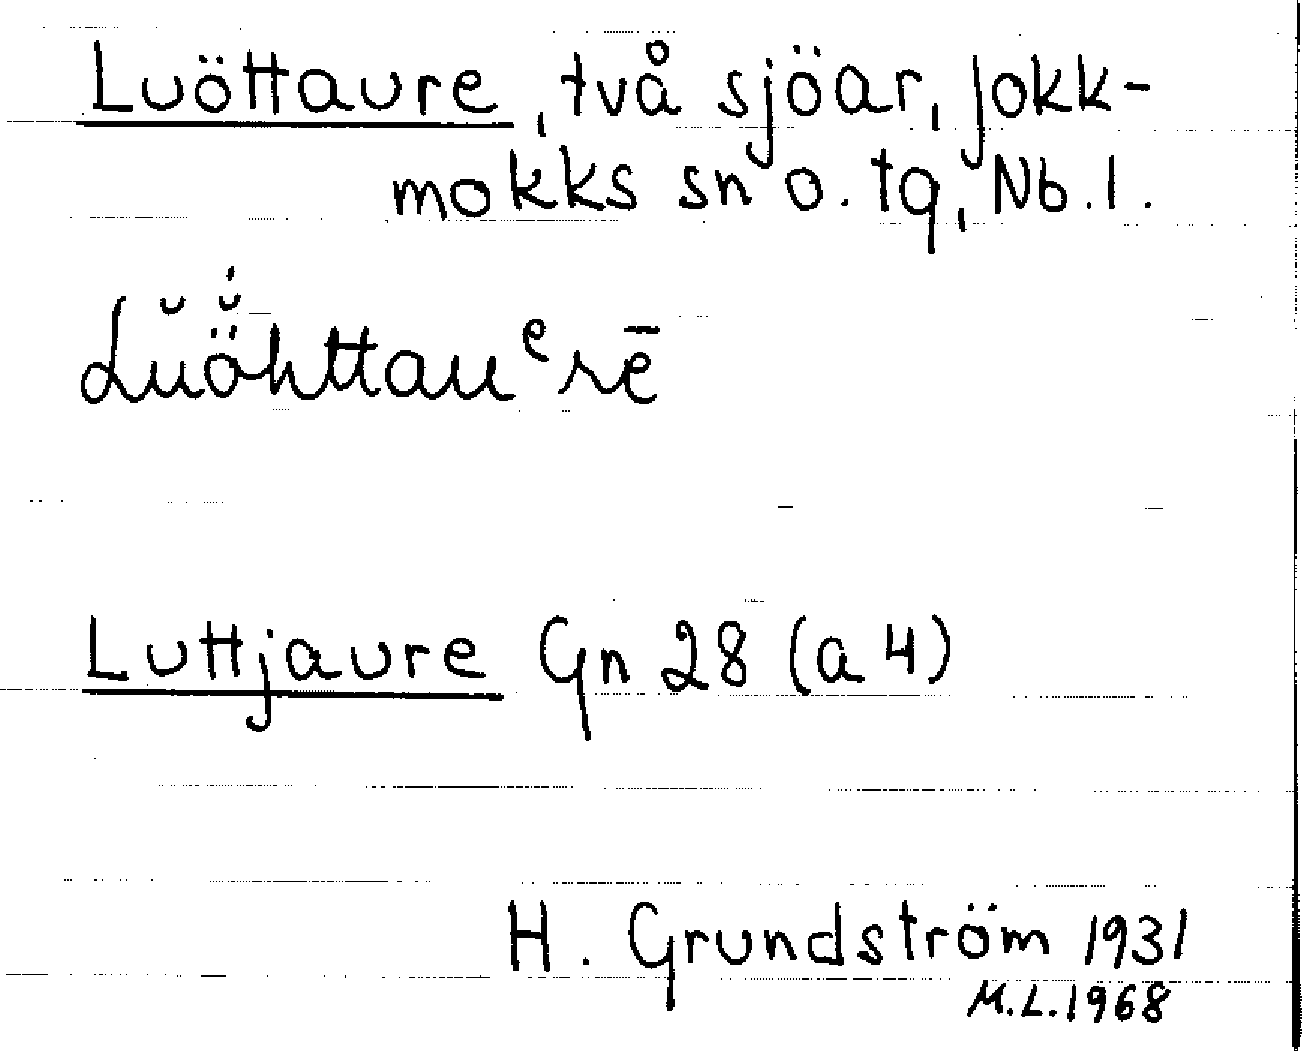 Luöttaure, två sjöar, Jokk-
mokks sn o. tg, Nb. l.
Lŭö̆́httauᵉrē
Luttjaure Gn 28 (a 4)
H. Grundström 1931
M.L. 1968